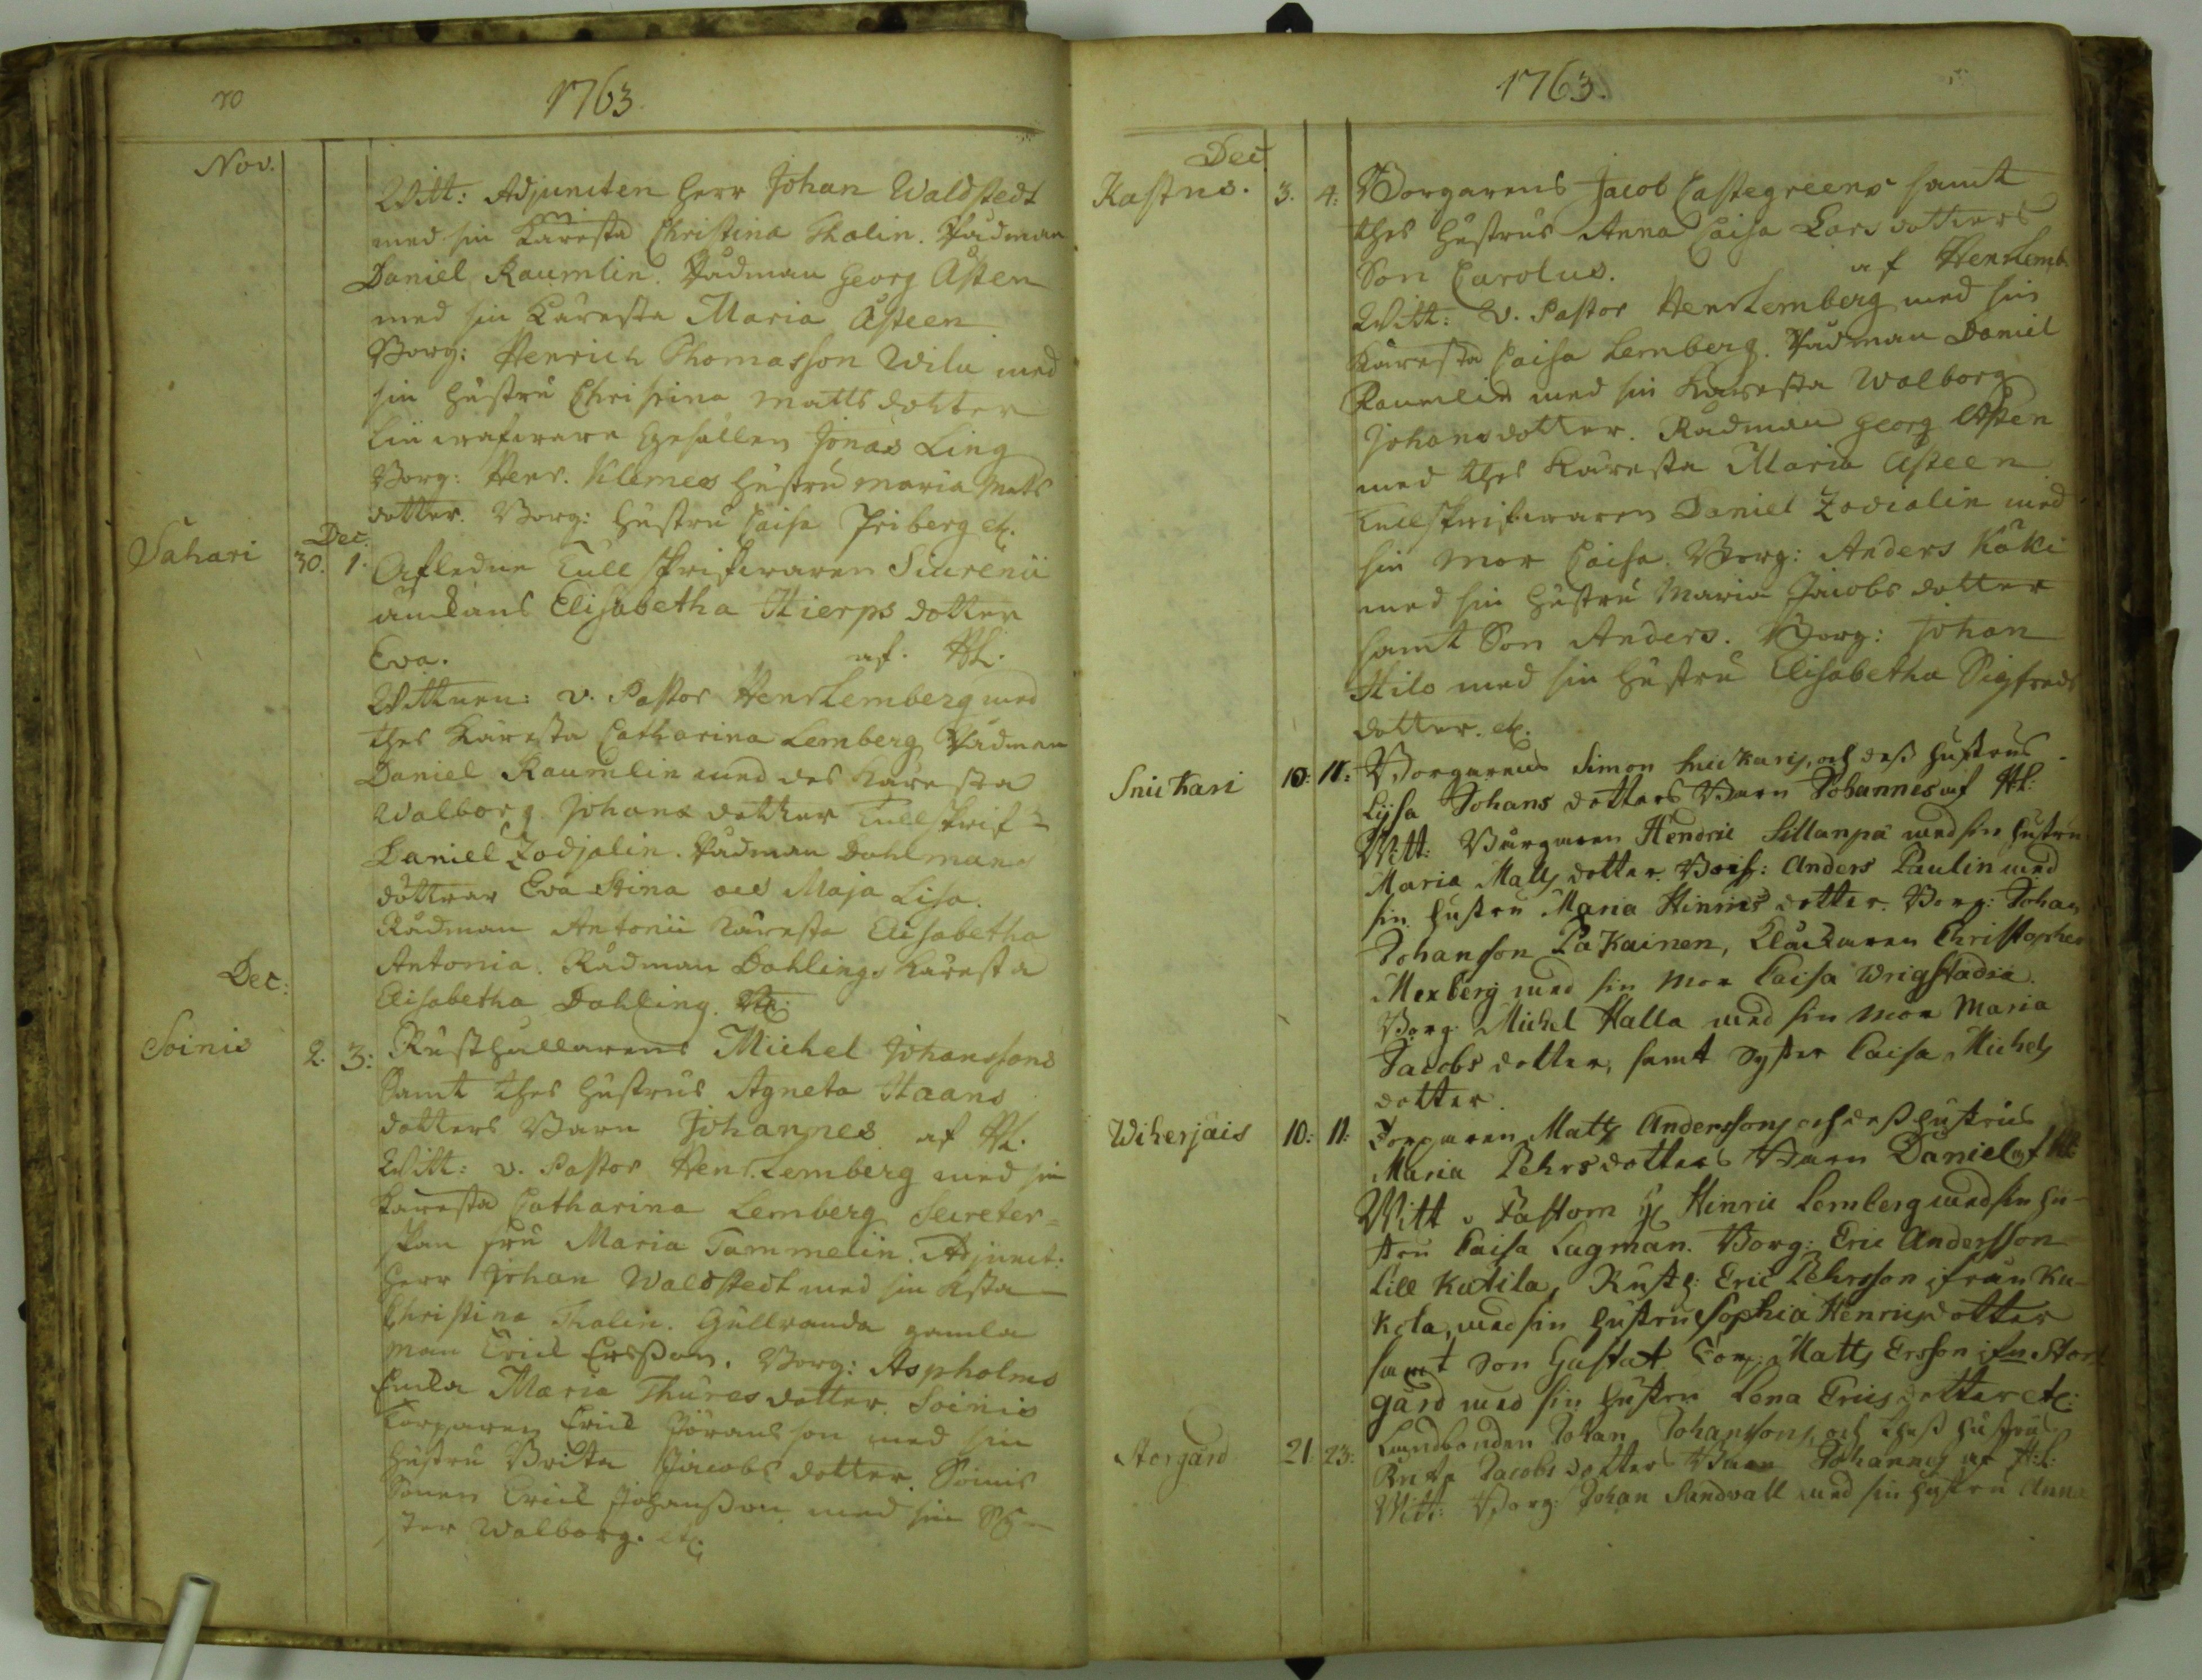 70
1763.
Nov.
Witt: Adjuncten Herr Johan Waldstedt
med sin Käresta Christina Thalin. Rådman
Daniel Raumlin. Rådman Georg Åsten
med sin Käresta Maria Åsteen
Borg: Henrich Thomasson Wilu med
sin hustru Christina Mattsdotter
Gesällen Jonas Ling
Borg: Henr. Klemes hustru Maria Mats
dotter. Borg: hustru Caisa Friberg etc.
Dec.
Sahari 30. 1. Afledne Tullskrifwaren Siurenii
änckans Elisabetha Stierps dotter
Eva. af. HL.
Wittnen: v. Pastor Henr Lemberg med
thes Käresta Catharina Lemberg Rådman
Daniel Raumlin med des Käresta
Walborg Johans dotter Tullskrif=
Daniel Zodjalin. Rådman Dahlmans
döttrar Eva Stina och Maja Lisa.
Rådman Antonii Käresta Elisabetha
Antonia. Rådman Dahlings Käresta
Elisabetha Dahling. etc:
Dec:
Soinis 2. 3: Rusthållarens Michel Johanssons
Samt thes hustrus Agneta Staans
dotters Barn Johannes af HL.
Witt: v. Pastor Henr. Lemberg med sin
Käresta Catharina Lemberg Secreter=
skan fru Maria Tammelin. Adjunct.
Herr Johan Waldstedt med sin Ksta
Christina Thalin. Gullranda gamla
man Eric Ersson. Borg: Aspholms
Encka Maria Thuresdotter. Soinis
Torparen Eric Jöransson med sin
hustru Brita Jacobsdotter. Soinis
Sonen Eric Johansson med sin Sÿ-
ster Walborg. etc.
1763.
Dec
Kastns. 3. 4: Borgarens Jacob Castegreens samt
thes hustrus Anna Caisa Larsdotters
Son Carolus. af HenrLemb.
Witt: V. Pastor Henr Lemberg med sin
Käresta Caisa Lemberg. Rådman Daniel
Raumlin med sin Käresta Walborg
Johansdotter. Rådman Georg Åsten
med thes Käresta Maria Åsteen
Tullskrifwaren Daniel Zodialin med
sin mor Caisa. Borg: Anders Käki
med sin hustru Maria Jacobs dotter
samt Son Anders. Borg: Johan
Hilo med sin hustru Elisabetha Sigfreds
dotter. etc.
Snickari 10: 11: Borgarens Simon Snickaris, och dess hustrus
Lijsa Johans dotters Barn Johannes af HL:
Witt: Borgaren Hendric Sillanpä med sin hustru
Maria Matts dotter. Borg: Anders Paulin med
sin hustru Maria Hinrics dotter. Borg: Johan
Johansson Päkainen, Klåckaren Christopher
Mexberg med sin Mor Caisa Wrigstadia.
Borg: Michel Halla med sin Mor Maria
Jacobs dotter, samt Syster Caisa Michels
dotter.
Wiherjais 10: 11: Torparen Matts Anderssons och dess hustrus
Maria Pehrsdotters Barn Daniel af HL
Witt v Pastorn H Hinric Lemberg med sin hu-
stru Caisa Lagman. Borg: Eric Andersson
Lill Kutila, Rusth: Eric Pehrsson ifrån Ku-
kola, med sin hustru Sophia Henricsdotter
samt Son Gustaf. Torp: Matts Ersson ifrn Stor
gård med sin hustru Lena Erics dotter etc:
Storgård 21. 23: Landbonden Johan Johanssons, och thess hustrus
Brita Jacobs dotters Barn Johannes af H:L:
Witt: Borg: Johan Sandvall med sin hustru Anna